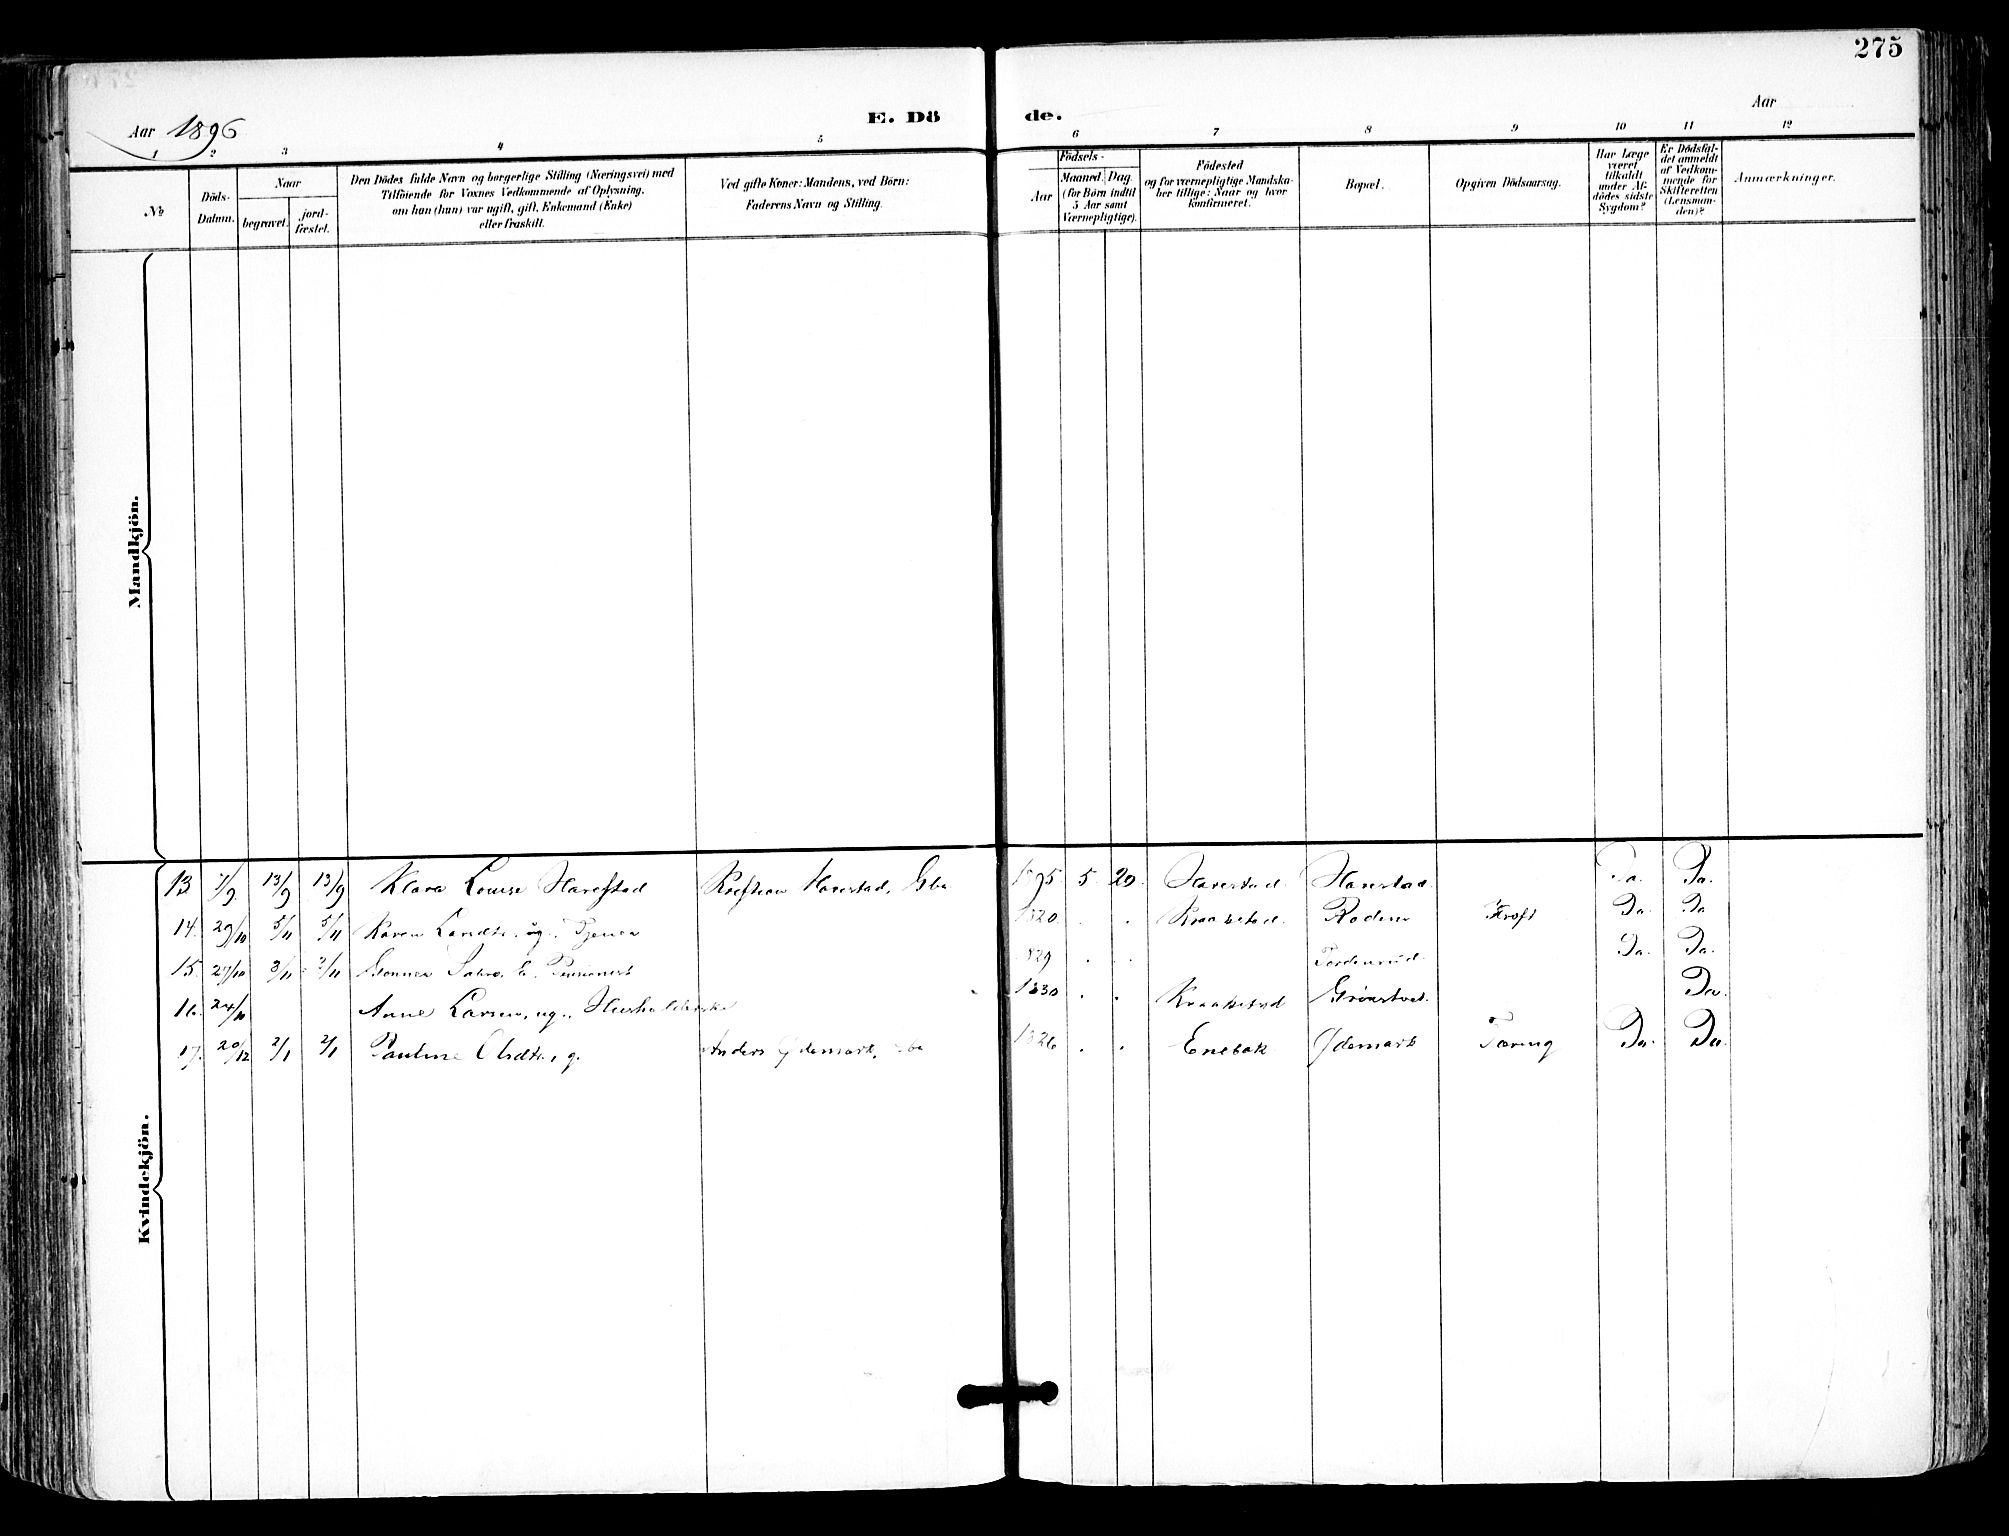 275
Aar 1896
E. Dö
de.
Aar
1 2 3 4 5 6 7 8 9 10 11 12
№
Döds-
Datum.
Naar
begravet.
jord-
fæstet.
Den Dödes fulde Navn og borgerlige Stilling (Næringsvei) med
Tilföiende for Voxnes Vedkommende af Oplysning,
om han (hun) var ugift, gift, Enkemand (Enke)
eller fraskilt.
Ved gifte Koner: Mandens, ved Börn:
Faderens Navn og Stilling.
Födsels-
Aar
Maaned. Dag.
(for Börn indtil
5 Aar samt
Værnepligtige).
Födested
og for værnepligtige Mandska-
ber tillige: Naar og hvor
konfirmeret.
Bopæl.
Opgiven Dödsaarsag.
Har Læge
været
tilkaldt
under Af-
dödes sidste
Sygdom?
Er Dödsfal-
det anmeldt
af Vedkom-
mende for
Skifteretten
(Lensman-
den)?
Anmærkninger.
Mandkjön.
Kvindekjön.
13 7/9 13/9 13/9 Klara Louise Harestad Harestad, Gbr 1895 5 20 Harestad Harestad Ja. Ja.
14. 29/10 5/11 5/11 Karen ug. Tjener 1820 . . Kraakstad Roden Kræft Ja. Ja
15. 27/10 3/11 3/11 829 . . Tordenrud Ja. Ja.
16. 24/10 Anne Larsen, ug., Husholderske 1830 . . Kraakstad Ja.
17. 20/12 2/1 2/1 Pauline Olsdtr, g. Anders Ødemark, 1826 . . Enebak Ødemark Tæring Ja. Ja.